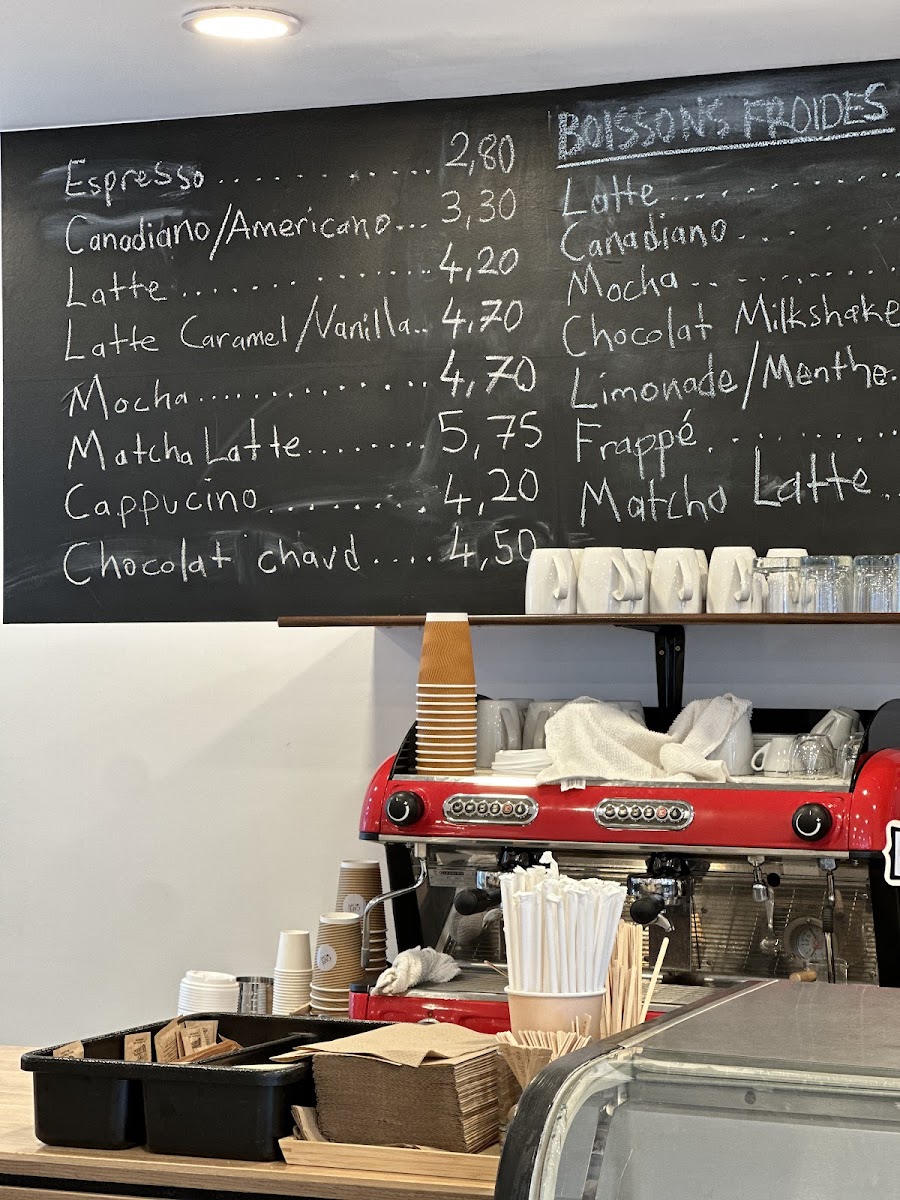 Espresso.............2,80
Canadiano/Americano...3,30
Latte...............4,20
Latte Caramel/Vanilla..4,70
Mocha...............4,70
Matcha Latte........5,75
Cappucino..........4,20
Chocolat chaud....4,50
BOISSONS FROIDES
Latte.............
Canadiano.......
Mocha...........
Chocolat Milkshake
Limonade/Menthe.
Frappé..........
Matcha Latte..